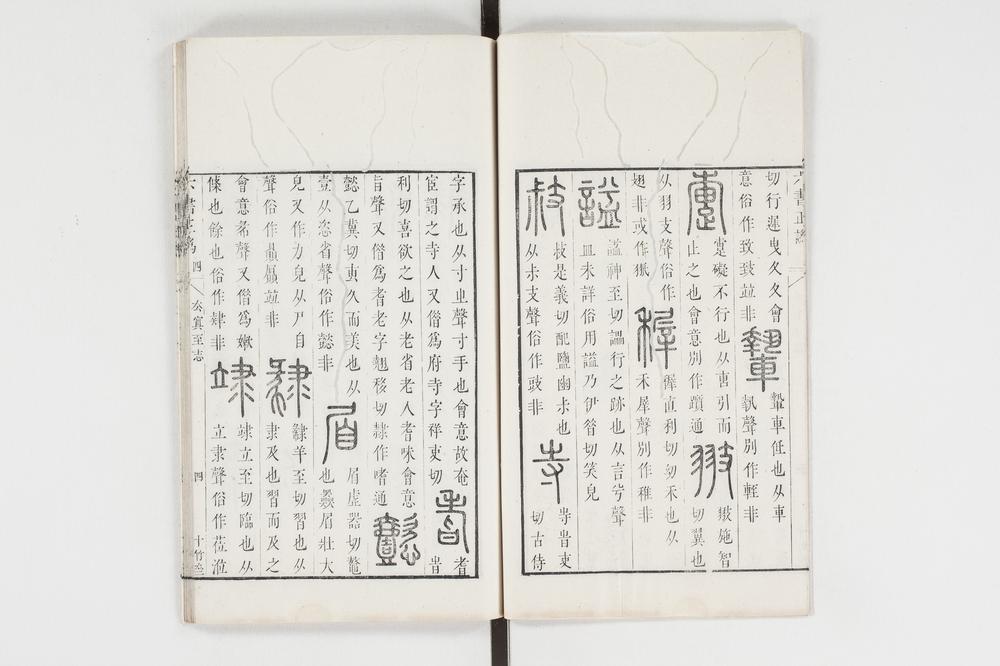 六書正譌
切行遲曳夂夂會
意俗作致致並非
䡹
䡹車低也从車
執聲別作輊非
疐
疐礙不行也从叀引而
止之也會意別作躓通
翄
翄施智
切翼也
从羽支聲俗作
翅非或作𦐊
稺
稺直利切幼禾也从
禾犀聲別作稚非
謚
謚神至切謚行之跡也从言兮聲
皿未詳俗用謚乃伊昝切笑皃
敊
敊是義切配鹽幽尗也
从尗支聲俗作豉非
寺
寺旹吏
切古侍
字承也从寸㞢聲寸手也會意故奄
宦謂之寺人又借爲府寺字祥吏切
耆
耆旹
利切喜欲之也从老省老人耆味會意
旨聲又借爲耆老字翹移切隸作嗜通
懿
懿乙冀切專久而美也从
壹从恣省聲俗作懿非
眉
眉虛器切鼇
也贔眉壯大
皃又作力皃从尸自
聲俗作贔屭並非
𨽸
𨽸羊至切習也从
隶及也習而及之
會意㣇聲又借爲嫩
條也餘也俗作肄非
𥪂
𥪂立至切臨也从
立隶聲俗作莅涖
六書正譌 四 去寘至志 四 十竹齋